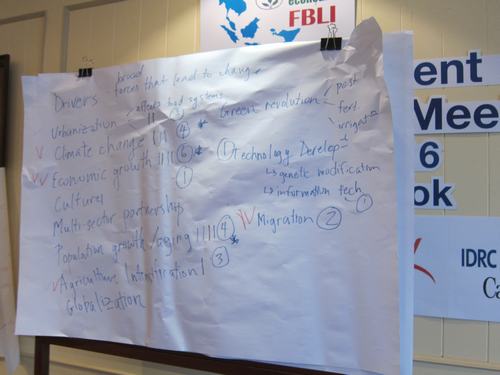 FBLI
ent
Mee
6
ok
IDRC
Ca
broad
forces that lead to change
Drivers
affects food systems
Urbanization ||
Climate change |||| 4
Economic growth 6
Culture 1
Multi-sector partnerships
Population growth / aging |||| 4
Agriculture Intensification | 3
Globalization
Green revolution
pest
fert
irrigat
1 Technology Develop
genetic modification
information tech 1
Migration 2